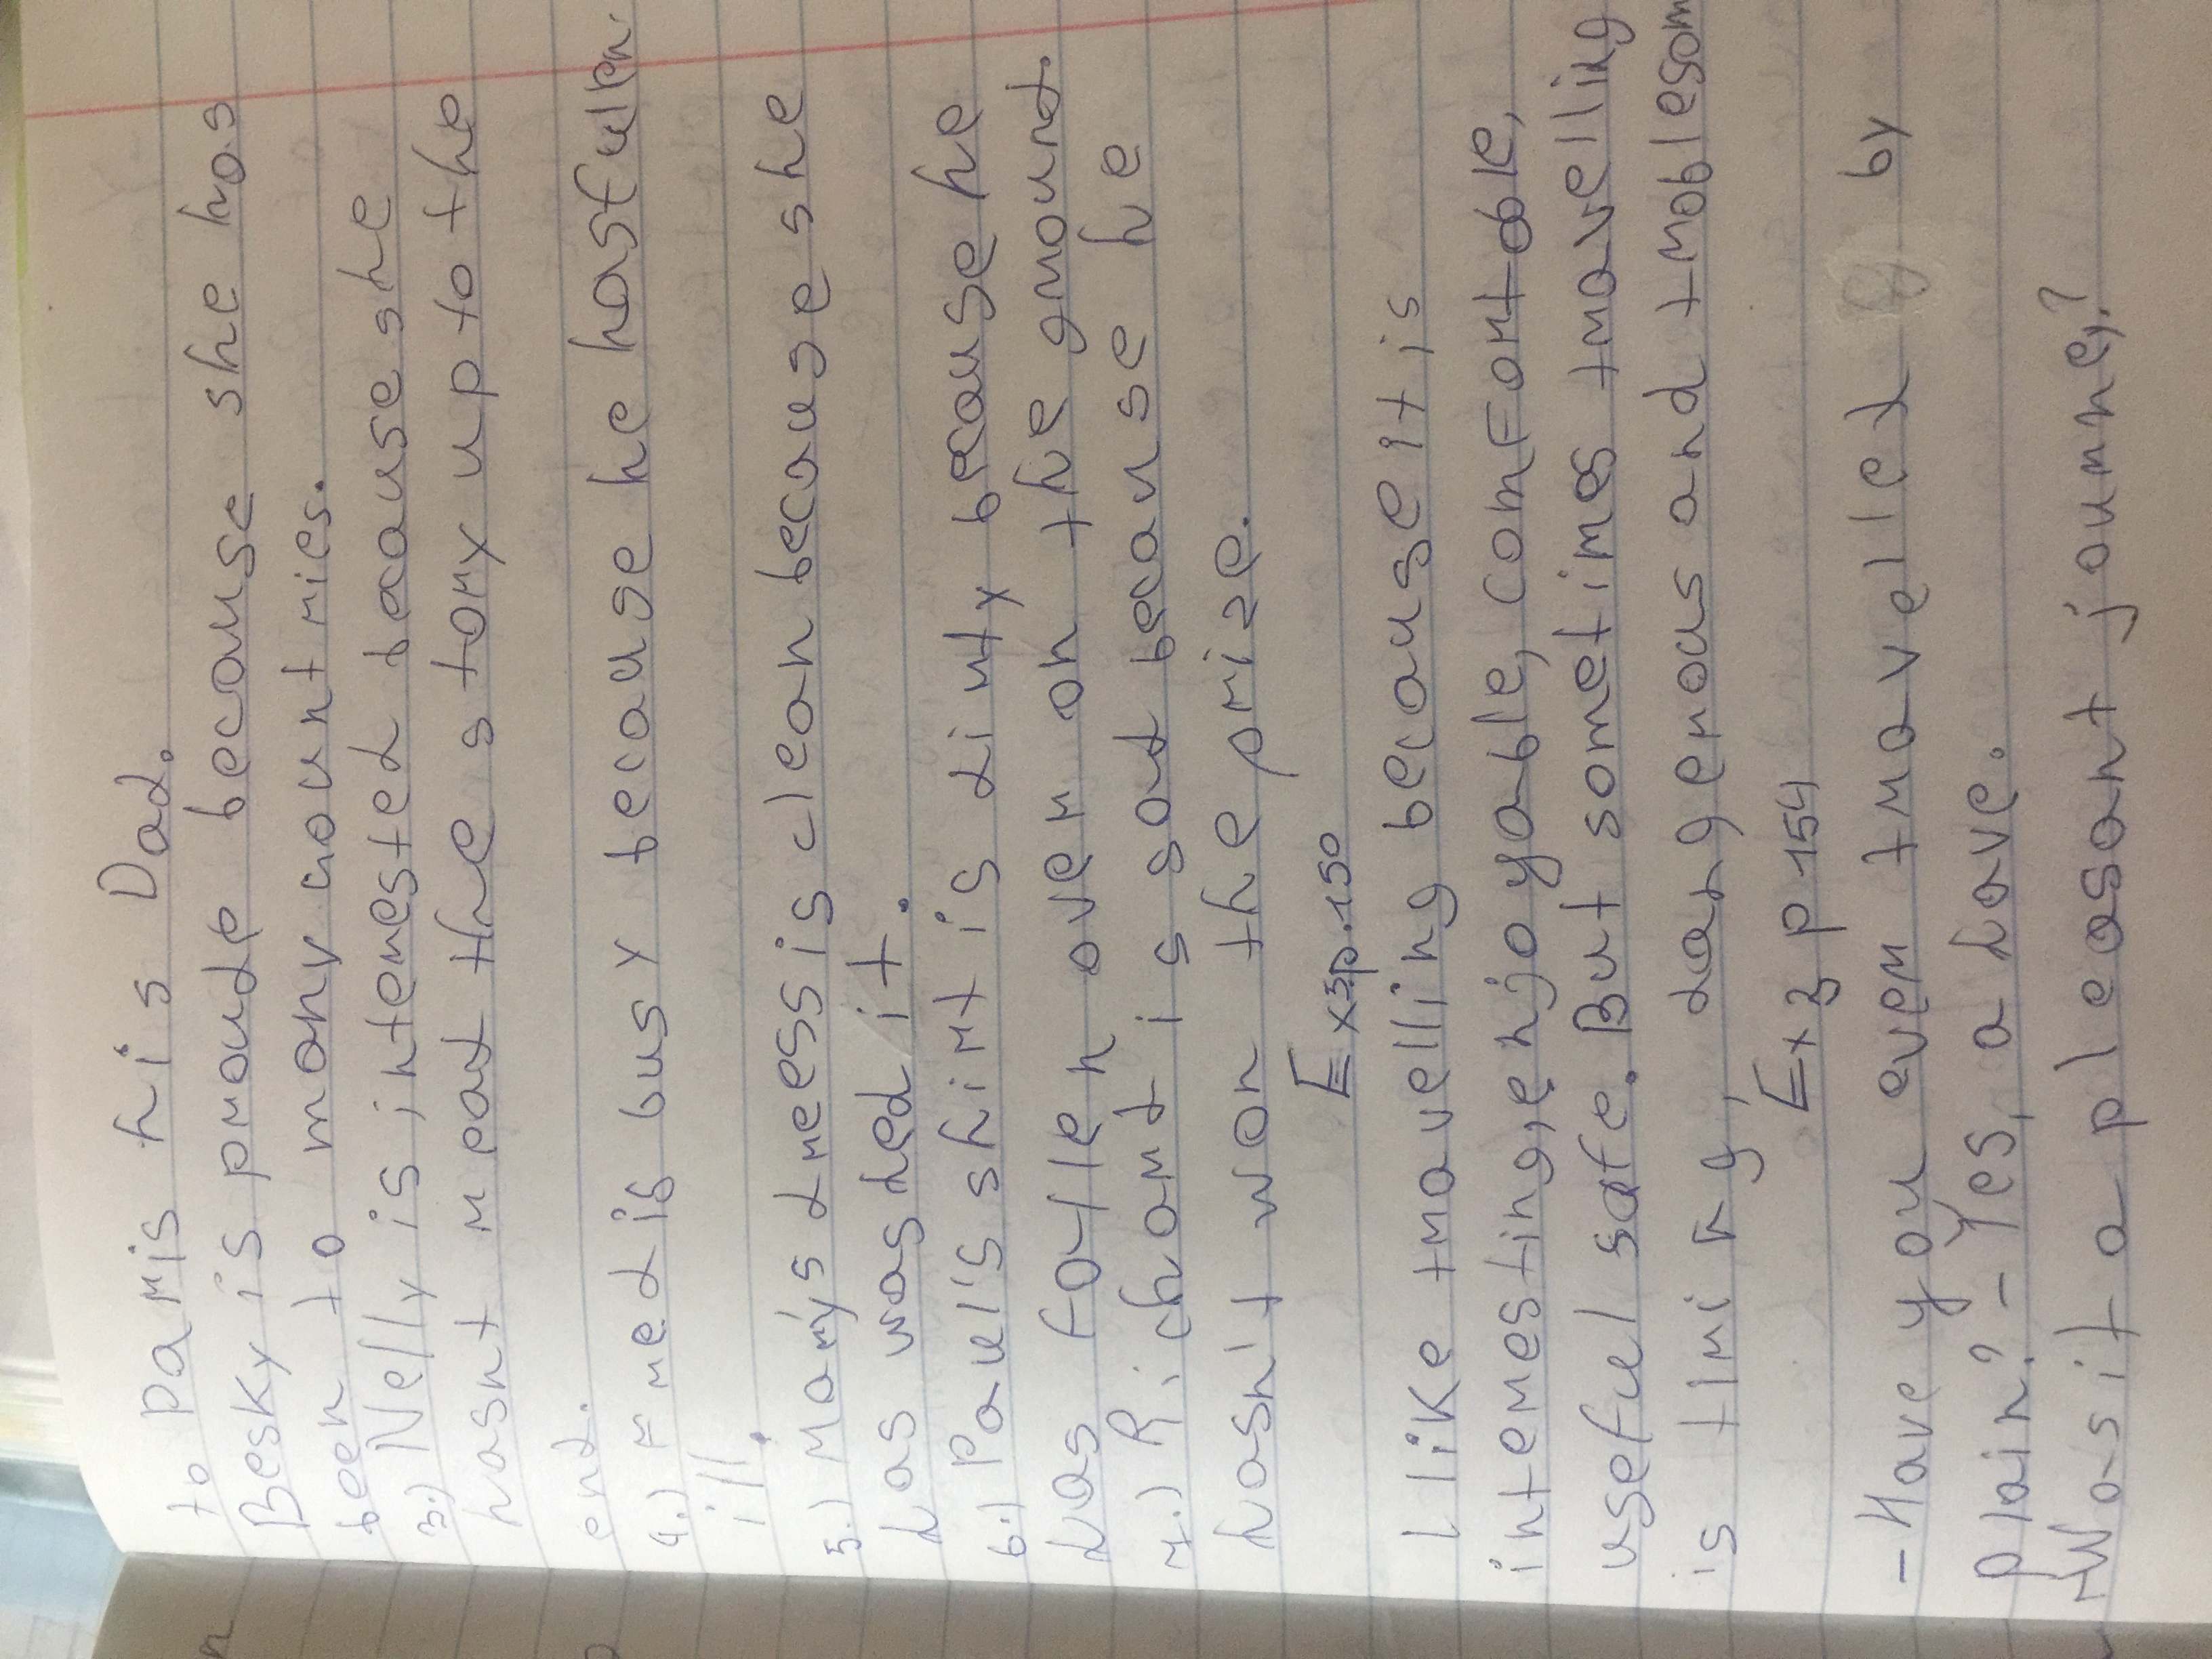 to Paris his Dad.
Besky is proude because she has
been to many countries.
3.) Nelly is interested because she
hasnt read the story up to the
end.
4.) Fred is busy because he hasfullen
ill.
5.) Mary's dress is clean because she
has washed it.
6.) Paul's shirt is dirty because he
has fallen over on the ground.
7.) Richard is sad because he
hasn't won the prize.
Ex3p.150
I like travelling because it is
interesting, enjoyable, comfortable,
useful safe. But sometimes travelling
is tiring, dangerous and troublesom
Ex 3 p 154
- Have you ever travelled by
plain? - Yes, a have.
- Was it a pleasant journey?